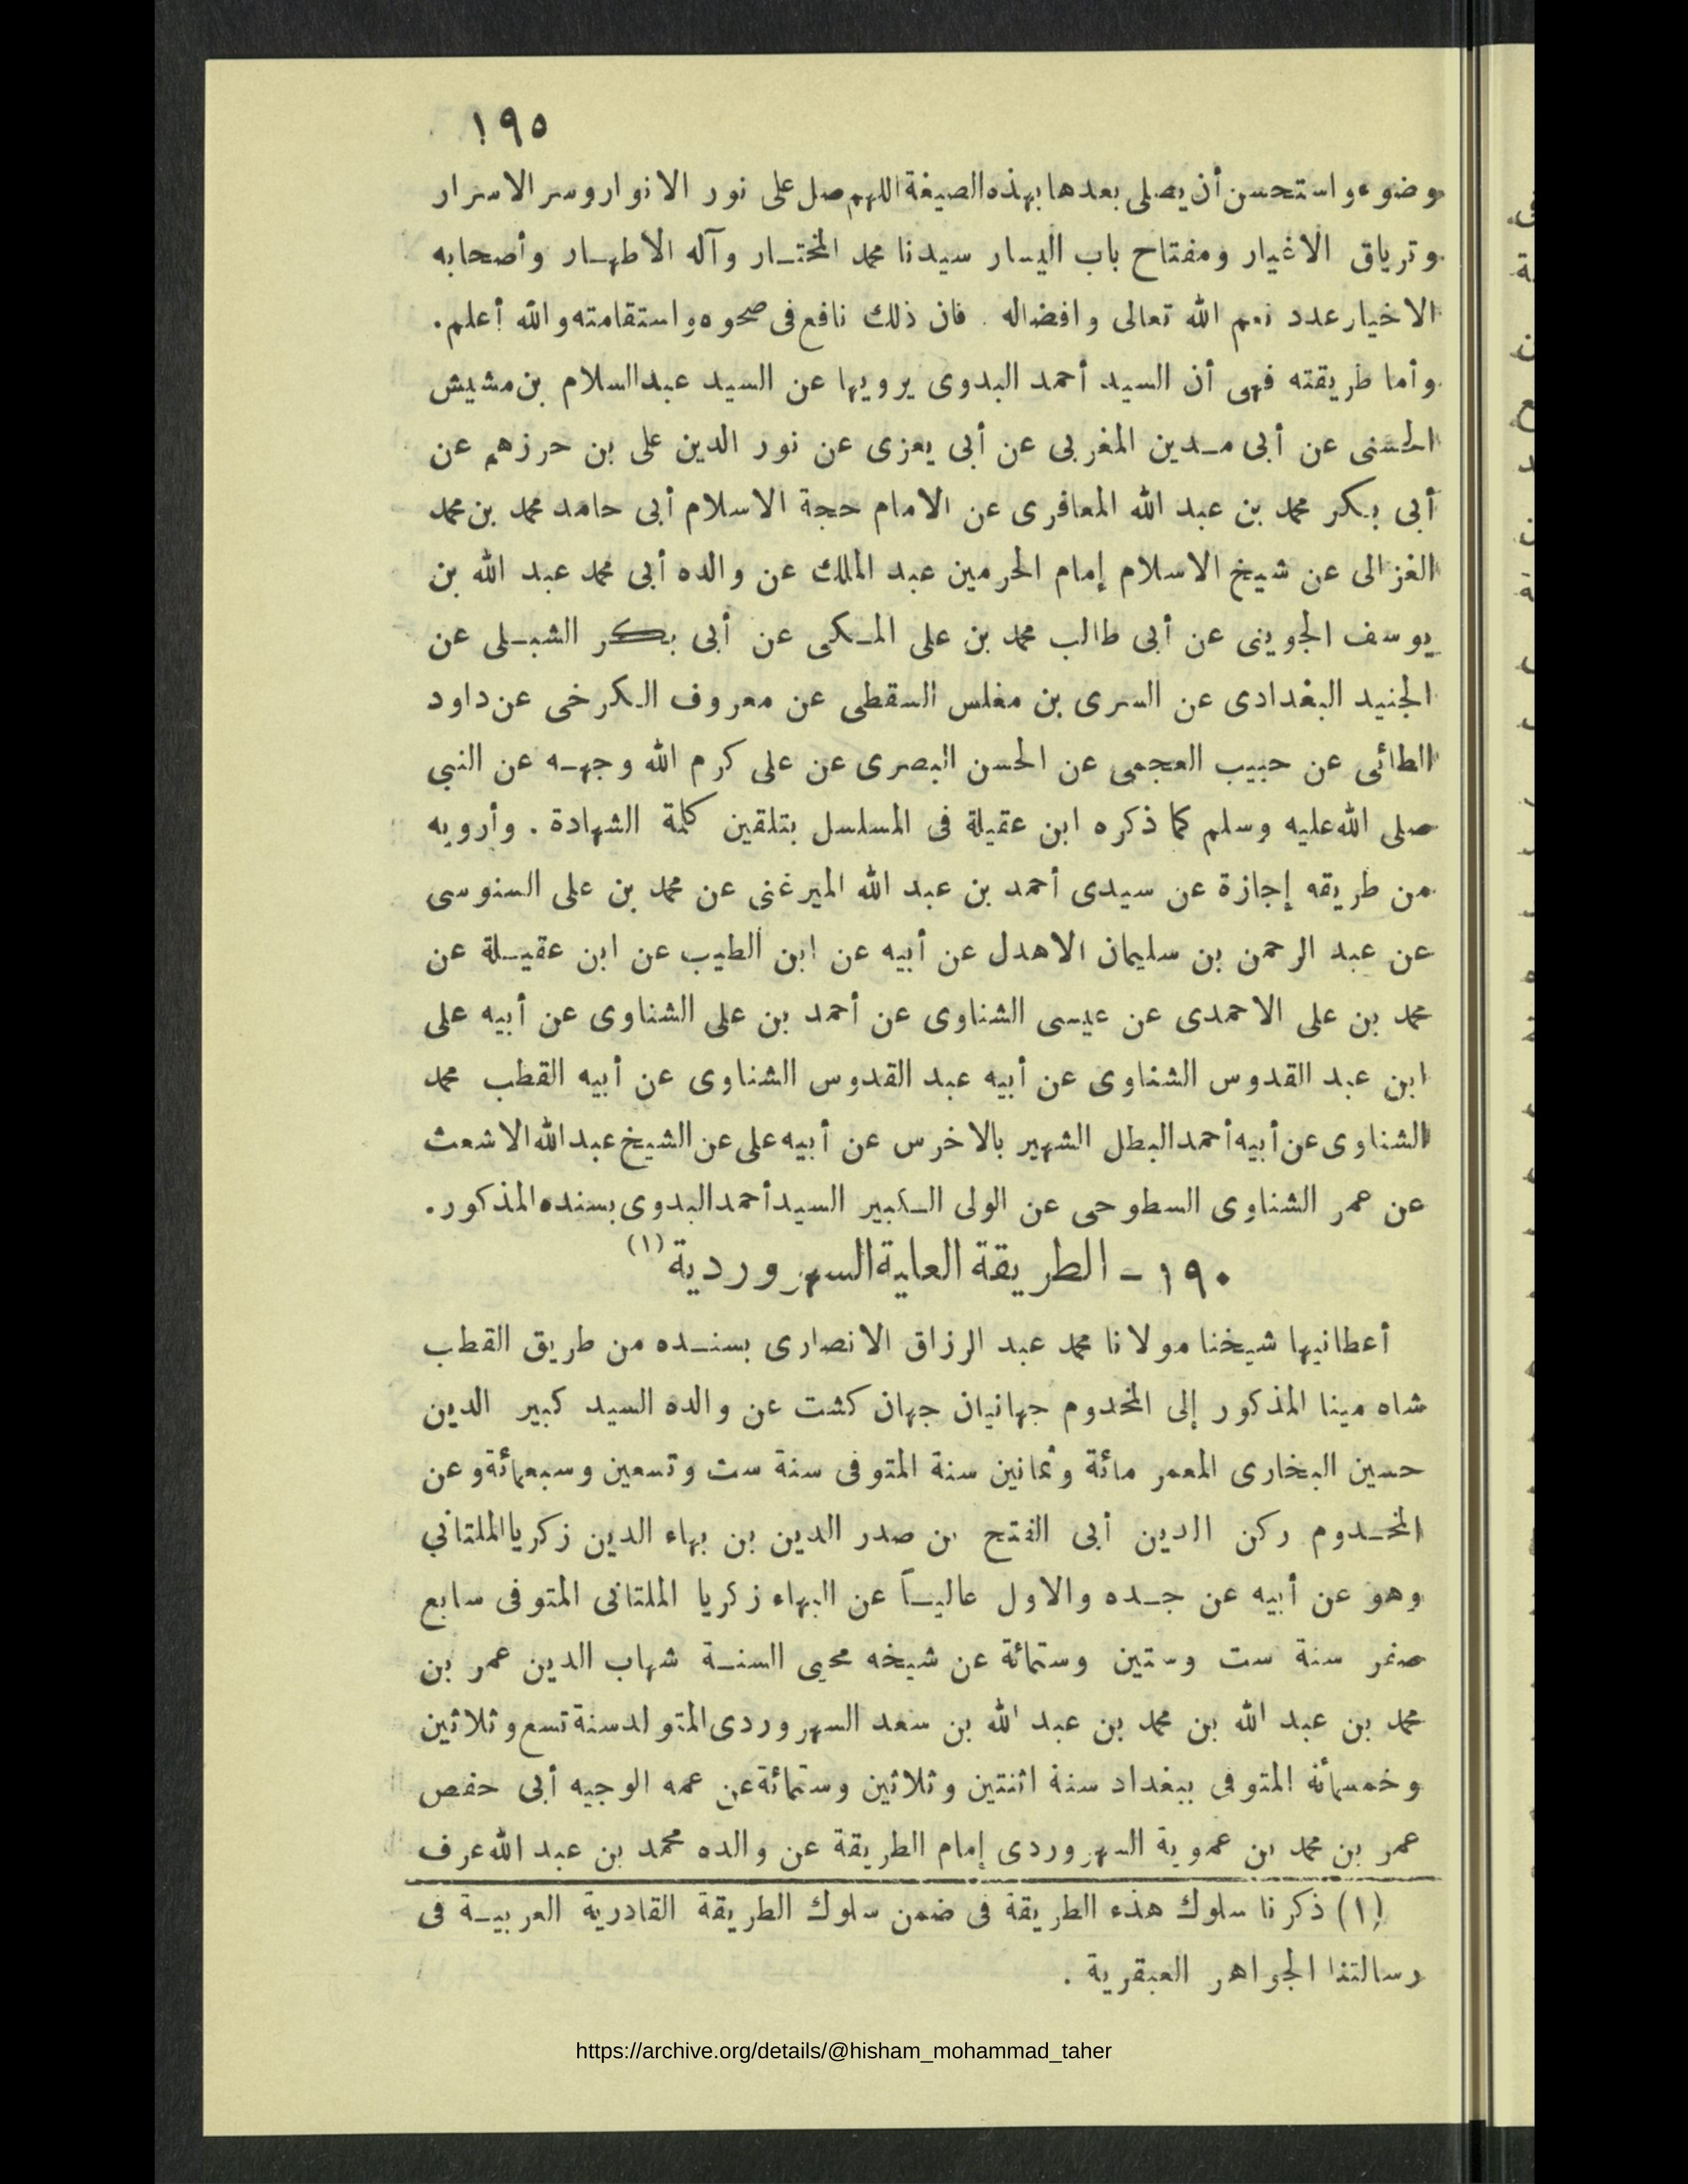 ١٩٥
وضوء واستحسن أن يصلى بعدها بهذه الصيغة اللهم صل على نور الانوار وسر الاسرار
وترياق الاغيار ومفتاح باب اليسار سيدنا محمد المختار وآله الاطهار وأصحابه
الاخيار عدد نعم الله تعالى وافضاله . فان ذلك نافع فى صحوه واستقامته والله أعلم .
وأما طريقته فهى أن السيد أحمد البدوى يرويها عن السيد عبد السلام بن مشيش
الحسنى عن أبى مدين المغربى عن أبى يعزى عن نور الدين على بن حرزهم عن
أبى بكر محمد بن عبد الله المعافرى عن الامام حجة الاسلام أبى حامد محمد بن محمد
الغزالى عن شيخ الاسلام إمام الحرمين عبد الملك عن والده أبى محمد عبد الله بن
يوسف الجوينى عن أبى طالب محمد بن على المكى عن أبى بكر الشبلى عن
الجنيد البغدادى عن السرى بن مغلس السقطى عن معروف الكرخى عن داود
الطائى عن حبيب العجمى عن الحسن البصرى عن على كرم الله وجهه عن النبي
صلى الله عليه وسلم كما ذكره ابن عقيلة فى المسلسل بتلقين كلمة الشهادة . وأرويه
من طريقه إجازة عن سيدى أحمد بن عبد الله الميرغنى عن محمد بن على السنوسى
عن عبد الرحمن بن سليمان الاهدل عن أبيه عن ابن الطيب عن ابن عقيلة عن
محمد بن على الاحمدى عن عيسى الشناوى عن أحمد بن على الشناوى عن أبيه على
ابن عبد القدوس الشناوى عن أبيه عبد القدوس الشناوى عن أبيه القطب محمد
الشناوى عن أبيه أحمد البطل الشهير بالاخرس عن أبيه على عن الشيخ عبد الله الاشعث
عن عمر الشناوى السطوحى عن الولى الكبير السيد أحمد البدوى بسنده المذكور .
١٩٠ - الطريقة العلية السهروردية (١)
أعطانيها شيخنا مولانا محمد عبد الرزاق الانصارى بسنده من طريق القطب
شاه مينا المذكور إلى المخدوم جهانيان جهان كشت عن والده السيد كبير الدين
حسين البخارى المعمر مائة وثمانين سنة المتوفى سنة ست وتسعين وسبعمائة وعن
المخدوم ركن الدين أبى الفتح بن صدر الدين بن بهاء الدين زكريا الملتاني
وهو عن أبيه عن جده والاول عالياً عن البهاء زكريا الملتانى المتوفى سابع
صفر سنة ست وستين وستمائة عن شيخه محيى السنة شهاب الدين عمر بن
محمد بن عبد الله بن محمد بن عبد الله بن سعد السهروردى المتولد سنة تسع وثلاثين
وخمسمائة المتوفى ببغداد سنة اثنتين وثلاثين وستمائة عن عمه الوجيه أبى حفص
عمر بن محمد بن عموية السهروردى إمام الطريقة عن والده محمد بن عبد الله عرف
(١) ذكرنا سلوك هذه الطريقة فى ضمن سلوك الطريقة القادرية العربية فى
رسالتنا الجواهر العبقرية .
https://archive.org/details/@hisham_mohammad_taher